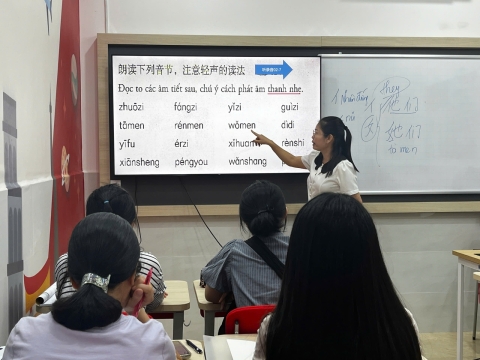 朗读下列音节，注意轻声的读法
Đọc to các âm tiết sau, chú ý cách phát âm thanh nhẹ.
zhuōzi fóngzi yǐzi guìzi
tāmen rénmen wǒmen dìdi
yīfu érzi xǐhuan rènshi
xiānsheng péngyou wǎnshang
they
他们
她们
ta men